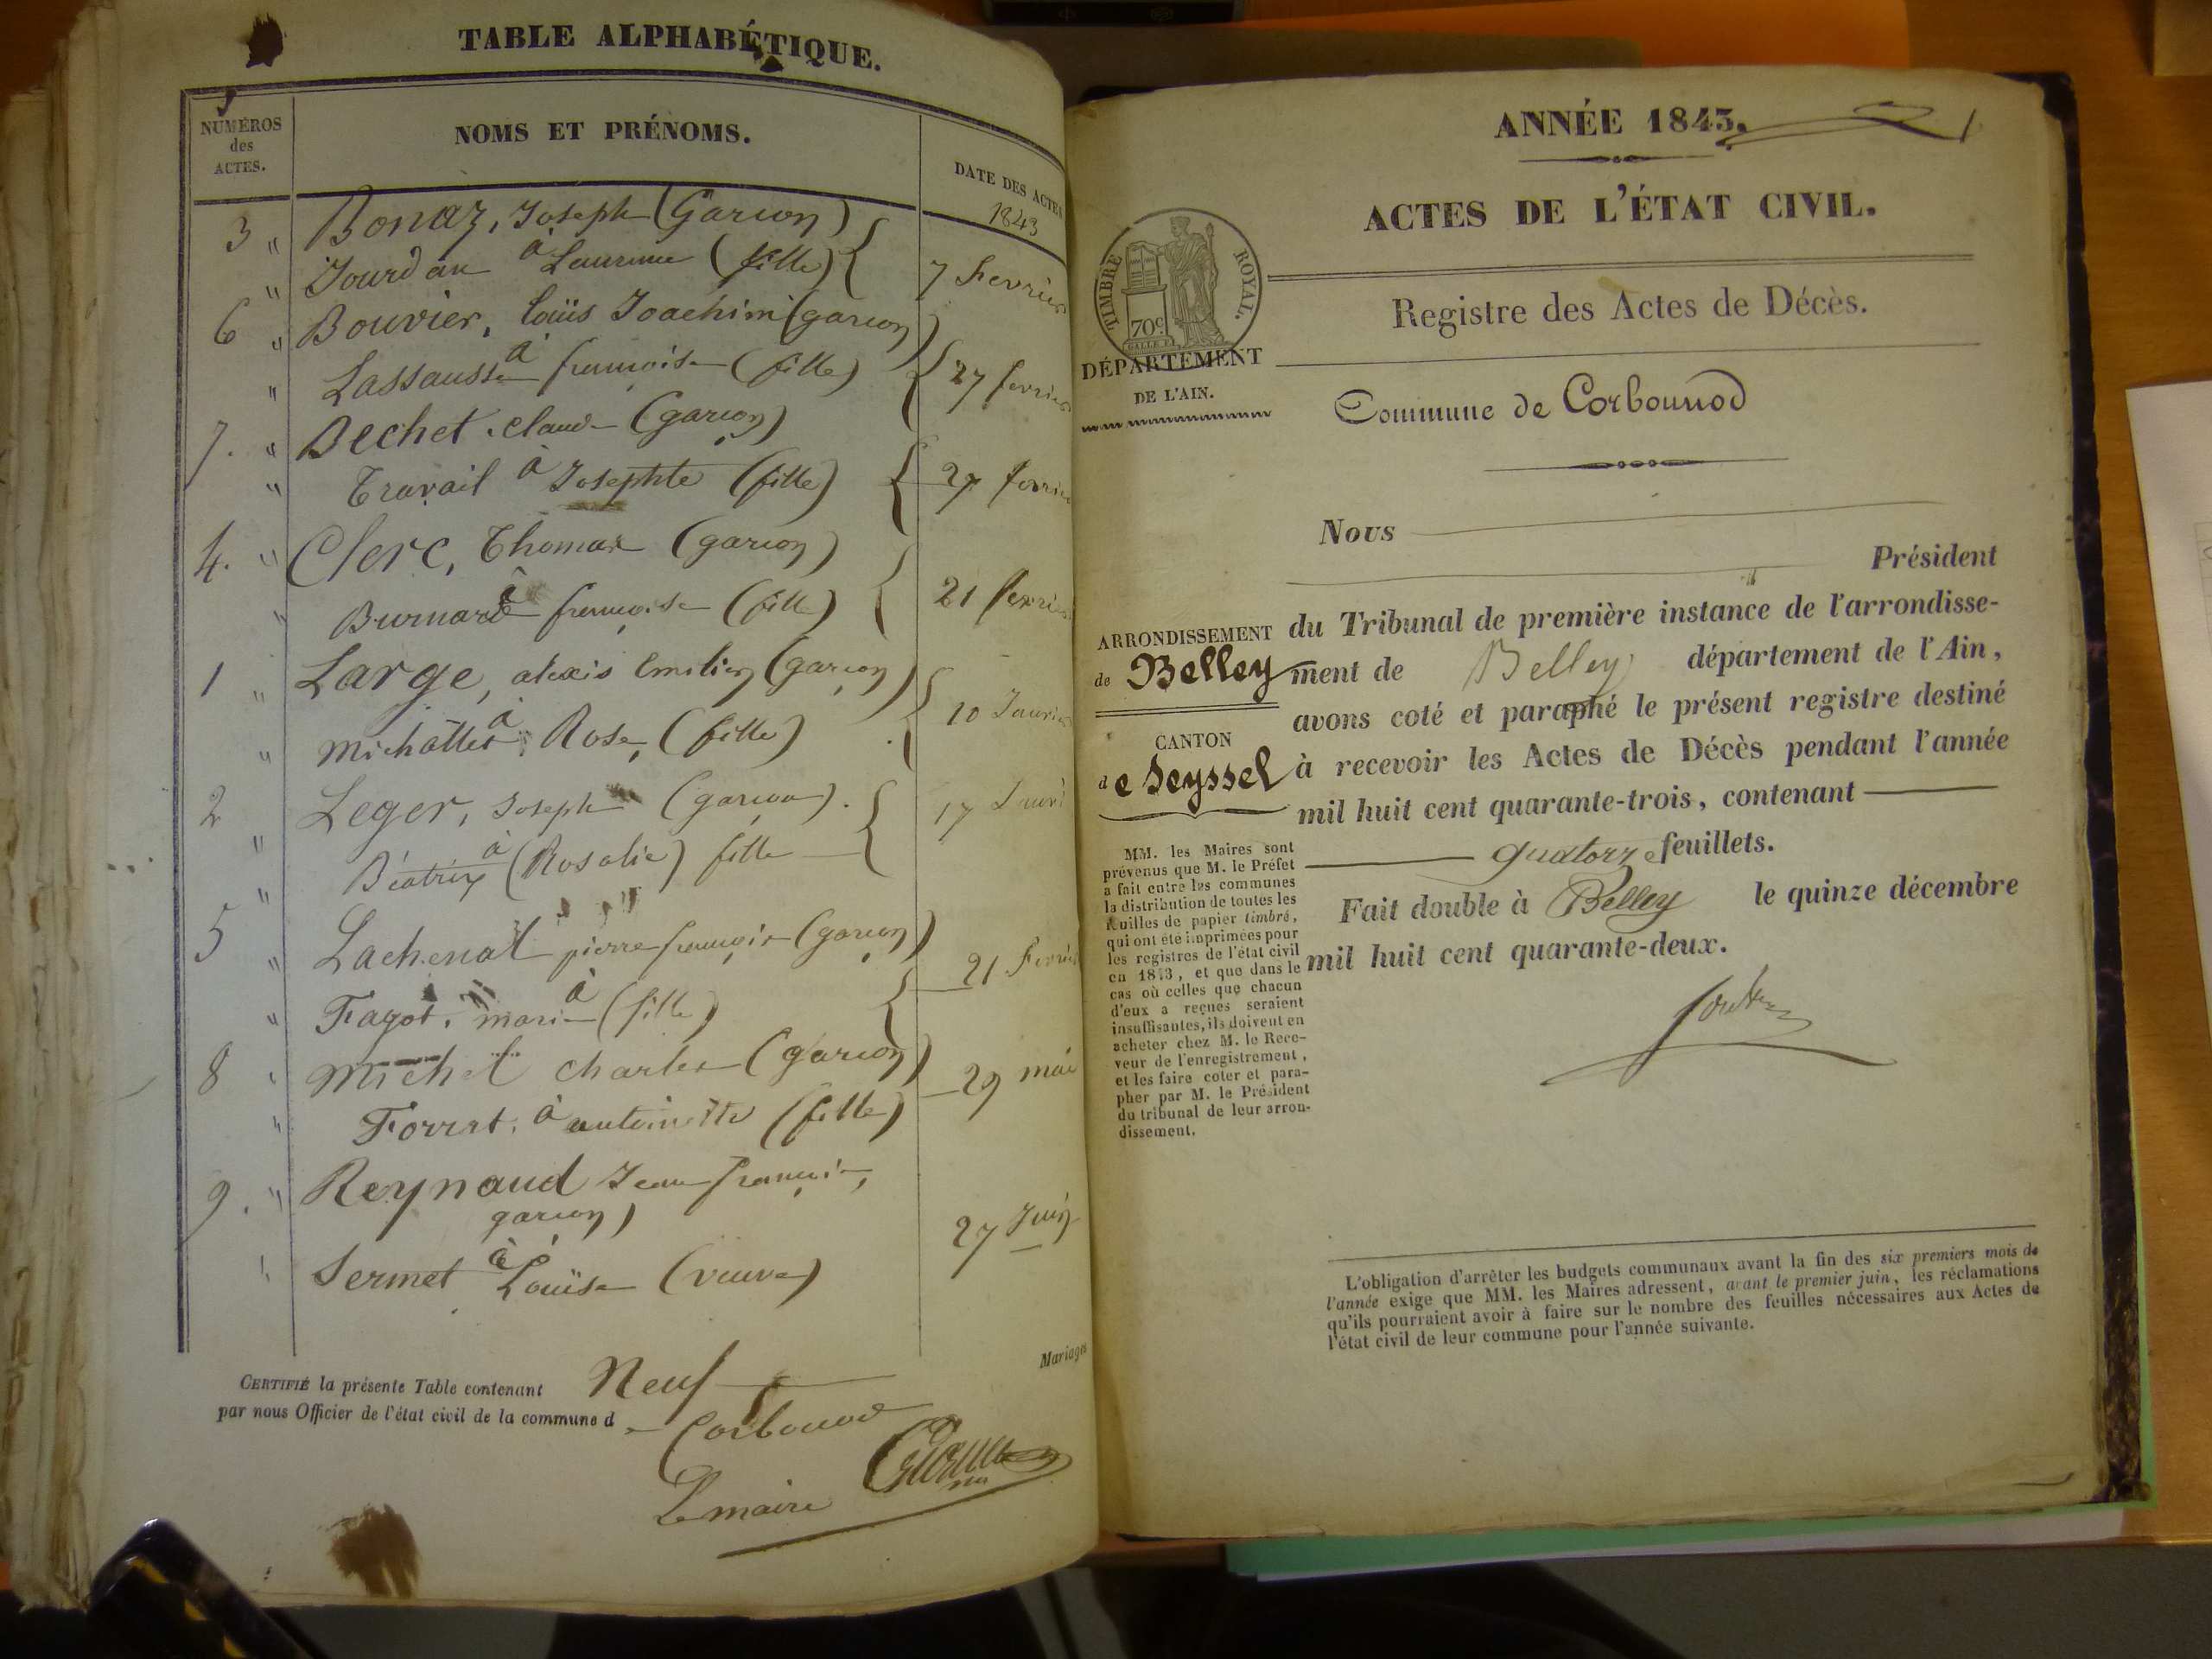 TABLE ALPHABÉTIQUE.
NUMÉROS
des
ACTES.
NOMS ET PRÉNOMS.
DATE DES ACTES
1843
3 " Bonaz, Joseph (Garcon)
" Jourdan à Laurence (fille) 7 Fevrier
6 " Bouvier, Loüis Joachim (garcon)
" Lassausse à francoise (fille) 27 fevrier
7. " Bechet, claude (garcon)
" Travail à Josephte (fille) 27 fevrier
4. " Clerc, Thomas (garcon)
" Burnard à francoise (fille) 21 fevrier
1 " Large, alexis Emilien (garcon)
" Michallet à Rose, (fille) 10 Janvier
2 " Leger, Joseph (garcon).
" Béatrix à (Rosalie) fille 17 Janvi
5 " Lachenal pierre francois (garcon)
" Fagot, marie à (fille) 21 Fevrier
8 " Michel charles (garcon) 29 mai
" Forest, à antoinette (fille)
9. " Reynaud Jean francois,
garcon)
" Sermet à Loüise (veuve) 27 Juin
Mariages
CERTIFIÉ la présente Table contenant Neuf
par nous Officier de l'état civil de la commune de Corbonod
Le maire
ANNÉE 1843. 1
ACTES DE L'ÉTAT CIVIL.
TIMBRE ROYAL.
70c
Registre des Actes de Décès.
DÉPARTEMENT
DE L'AIN.
Commune de Corbonnod
Nous
Président
ARRONDISSEMENT
de Belley
CANTON
de Seyssel
du Tribunal de première instance de l'arrondisse-
ment de Belley département de l'Ain,
avons coté et paraphé le présent registre destiné
à recevoir les Actes de Décès pendant l'année
mil huit cent quarante-trois, contenant
quatorze feuillets.
Fait double à Belley le quinze décembre
mil huit cent quarante-deux.
MM. les Maires sont
prévenus que M. le Préfet
a fait entre les communes
la distribution de toutes les
feuilles de papier timbré,
qui ont été imprimées pour
les registres de l'état civil
en 1843, et que dans le
cas où celles que chacun
d'eux a reçues seraient
insuffisantes, ils doivent en
acheter chez M. le Rece-
veur de l'enregistrement,
et les faire coter et para-
pher par M. le Président
du tribunal de leur arron-
dissement.
L'obligation d'arrêter les budgets communaux avant la fin des six premiers mois de
l'année exige que MM. les Maires adressent, avant le premier juin, les réclamations
qu'ils pourraient avoir à faire sur le nombre des feuilles nécessaires aux Actes de
l'état civil de leur commune pour l'année suivante.